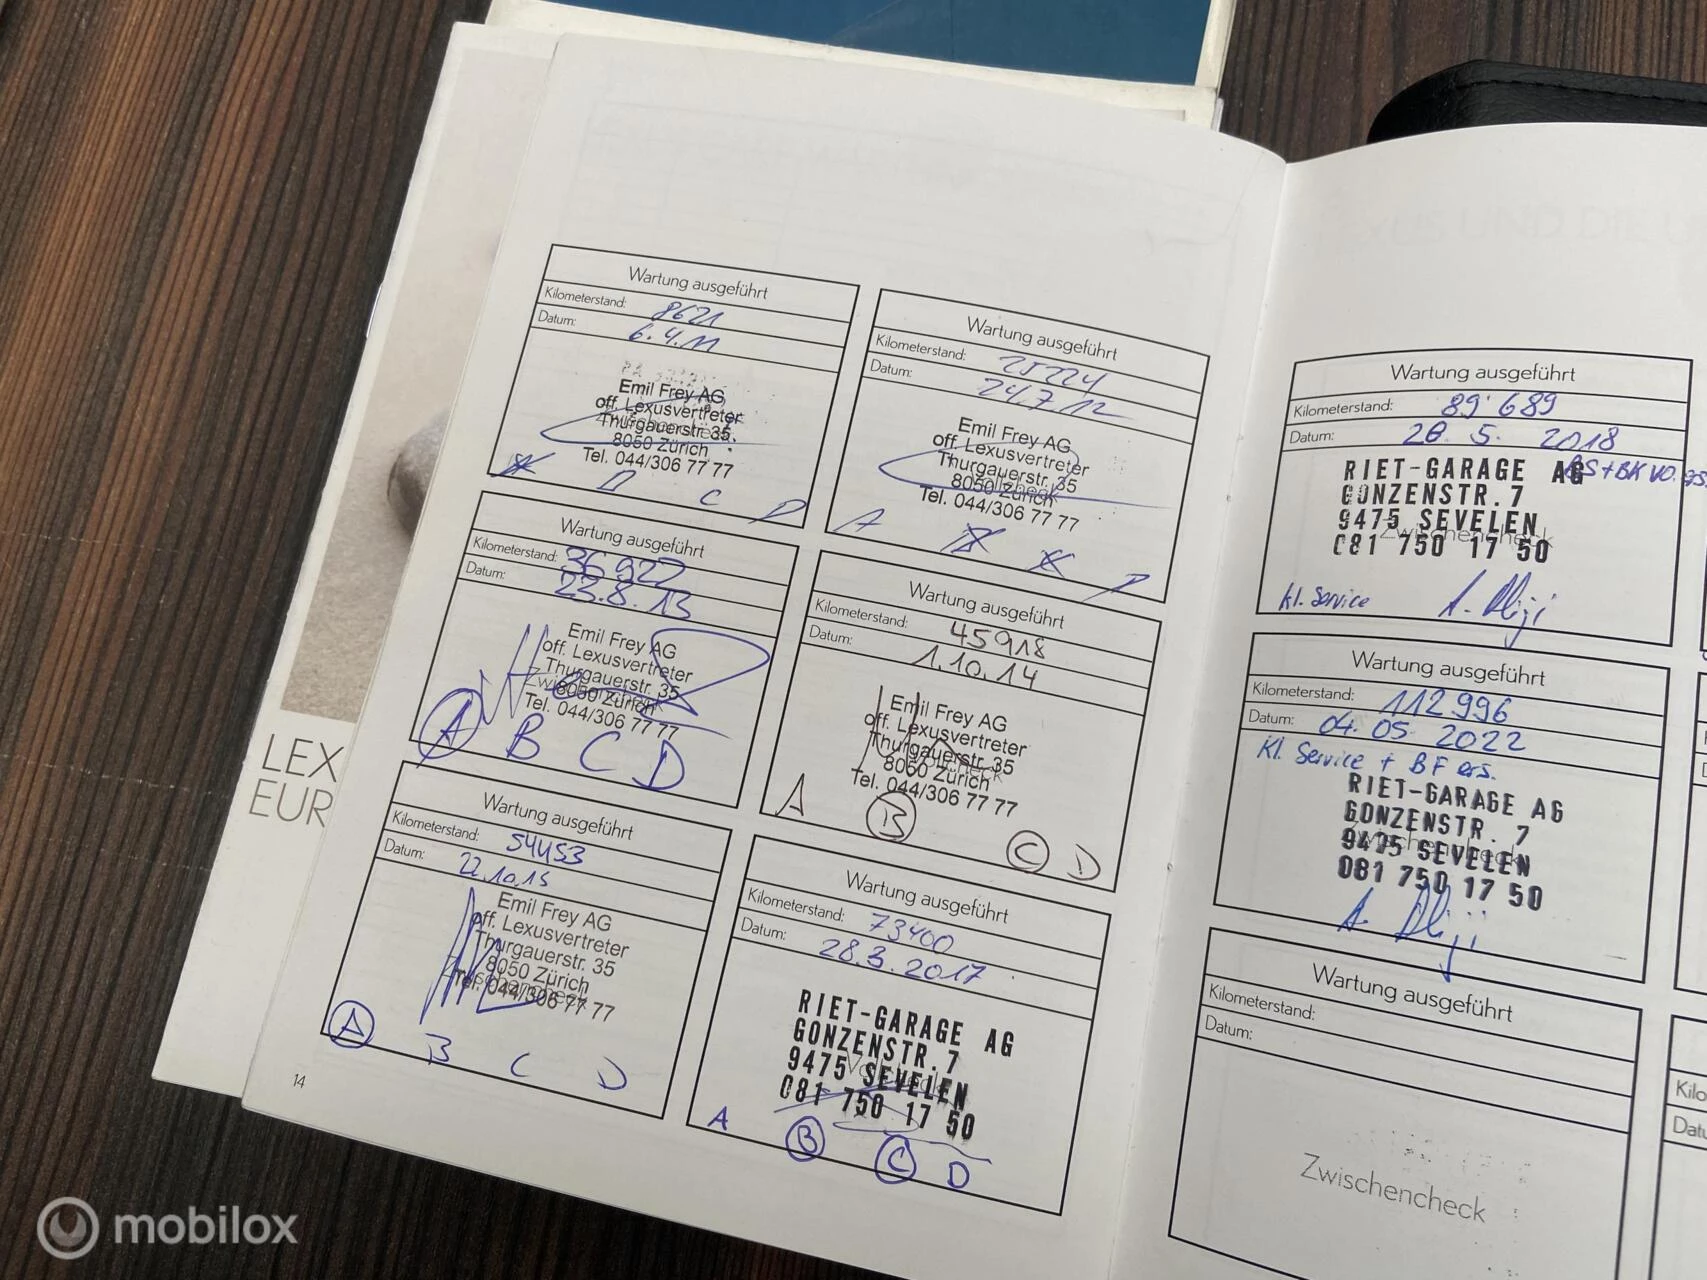 Wartung ausgeführt
Kilometerstand: 8621
Datum: 6.4.11
Emil Frey AG
off. Lexusvertreter
Thurgauerstr. 35
8050 Zürich
Tel. 044/306 77 77
C D
Wartung ausgeführt
Kilometerstand: 25224
Datum: 24.7.12
Emil Frey AG
off. Lexusvertreter
Thurgauerstr. 35
8050 Zürich
Tel. 044/306 77 77
A B C D
Wartung ausgeführt
Kilometerstand: 36922
Datum: 23.8.13
Emil Frey AG
off. Lexusvertreter
Thurgauerstr. 35
8050 Zürich
Tel. 044/306 77 77
A B C D
Wartung ausgeführt
Kilometerstand: 45918
Datum: 1.10.14
Emil Frey AG
off. Lexusvertreter
Thurgauerstr. 35
8050 Zürich
Tel. 044/306 77 77
A B C D
Wartung ausgeführt
Kilometerstand: 54453
Datum: 22.10.15
Emil Frey AG
off. Lexusvertreter
Thurgauerstr. 35
8050 Zürich
Tel. 044/306 77 77
A B C D
Wartung ausgeführt
Kilometerstand: 73400
Datum: 28.3.2017
RIET-GARAGE AG
GONZENSTR. 7
9475 SEVELEN
081 750 17 50
A B C D
14
Wartung ausgeführt
Kilometerstand: 89'689
Datum: 28. 5. 2018
RIET-GARAGE AG
GONZENSTR. 7
9475 SEVELEN
Zwischencheck
081 750 17 50
Kl. Service
Wartung ausgeführt
Kilometerstand: 112996
Datum: 04.05.2022
Kl. Service + BF ers.
RIET-GARAGE AG
GONZENSTR. 7
9475 SEVELEN
081 750 17 50
Wartung ausgeführt
Kilometerstand:
Datum:
Zwischencheck
LEX
EUR
mobilox